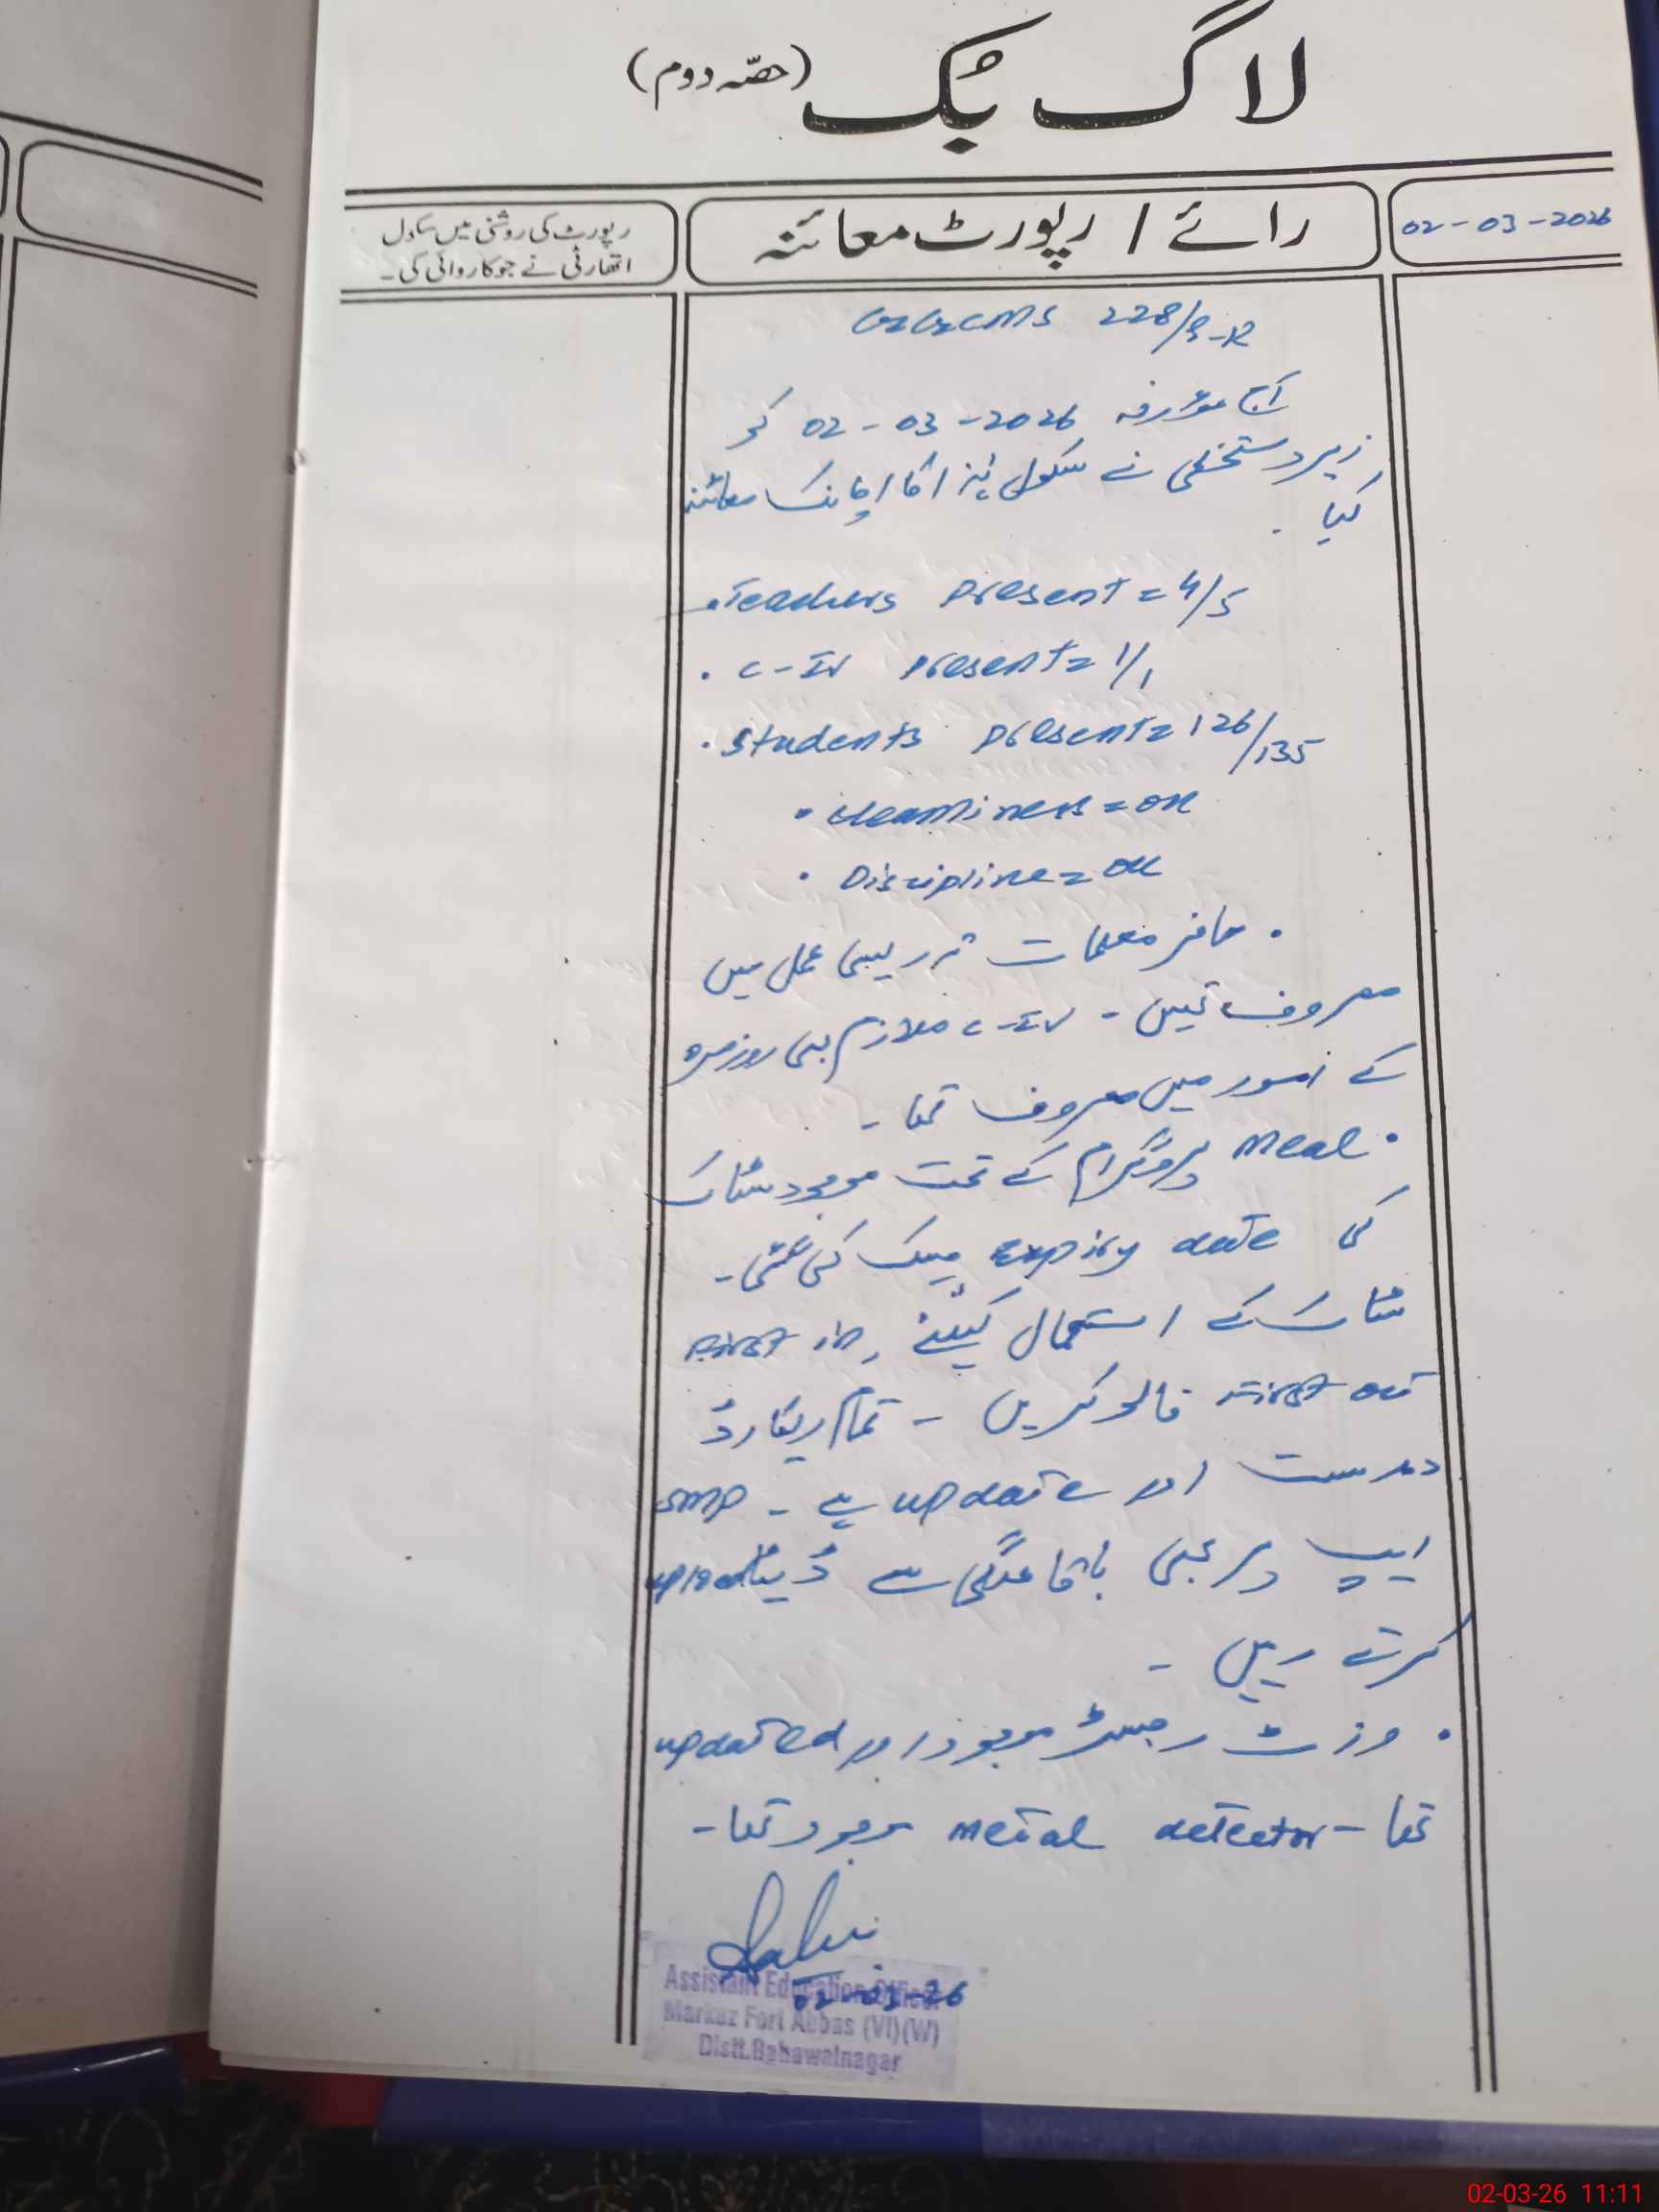 لاگ بُک (حصّہ دوم)
02-03-2026
رائے / رپورٹ معائنہ
رپورٹ کی روشنی میں سکول
اتھارٹی نے جو کاروائی کی۔
GGCMS 228/9-R
آج مورخہ 02-03-2026 کو
زیر دستخطی نے سکول ہٰذا کا اچانک معائنہ
کیا ۔
• Teachers Present = 4/5
• C-IV Present = 1/1
• Students Present = 126/135
• Cleanliness = OK
• Discipline = OK
• حاضر معلمات تدریسی عمل میں
مصروف تھیں ۔ C-IV ملازم بھی روزمرہ
کے امور میں مصروف تھا ۔
• Meal پروگرام کے تحت موجود سٹاک
کی expiry date چیک کی گئی ۔
سٹاک کے استعمال کیلئے first in,
first out فالو کریں ۔ تمام ریکارڈ
درست اور update ہے ۔ SMP
ایپ پر بھی باقاعدگی سے ڈیٹا upload
کرتے رہیں ۔
• وزٹ رجسٹر موجود اور updated
تھا ۔ metal detector موجود تھا ۔
02-03-26
Assistant Education Officer
Markaz Fort Abbas (VI)(W)
Distt. Bahawalnagar
02-03-26 11:11